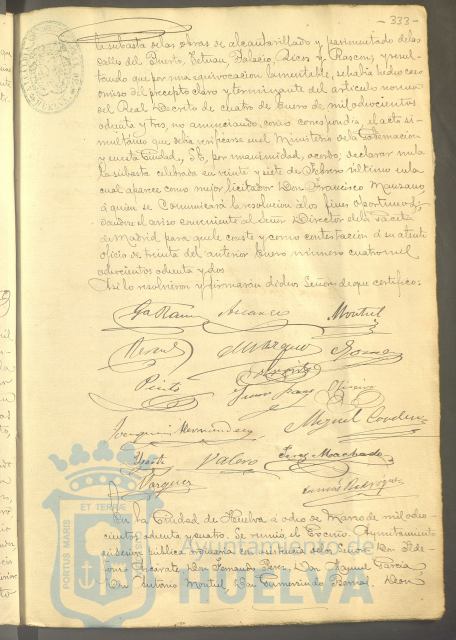 - 333 -
la subasta de las obras de alcantarillado y pavimentado de las
calles del Puerto, Tetuan, Palacio, Ricos y Rascon; y resul-
tando que por una equivocacion lamentable, se habia hecho caso
omiso del precepto claro y terminante del articulo noveno
del Real Decreto de cuatro de Enero de mil ochocientos
ochenta y tres, no anunciando, como correspondia, el acto si-
multáneo que debia verificarse en el Ministerio de la Gobernacion
y en esta Ciudad, S. E., por unanimidad, acordó; declarar nula
la subasta celebrada en veinte y siete de Febrero último en la
cual aparece como mejor licitador Don Francisco Manzano
á quien se comunicará la resolucion á los fines oportunos;
dandose el aviso conveniente al Señor Director de la Gaceta
de Madrid para que le conste y como contestacion á su atento
oficio de treinta del anterior Enero número cuatro mil
ochocientos ochenta y dos.
Asi lo resolvieron y firmarán dichos Señores de que certifico:
Garcia Montiel
Marquez
Pinto
Joaquin Hernandez Miguel
Valero Perez Machado
Vazquez
En la Ciudad de Huelva á ocho de Marzo de mil ocho-
cientos ochenta y cuatro. Se reunió el Excmo. Ayuntamiento
en sesion pública ordinaria con asistencia de los Señores Don Ilde-
Don Fernando Perez, Don Manuel Garcia
Don Antonio Montiel Don Gumersindo Don
PORTUS MARIS ET TERRAE
Ayuntamiento de
HUELVA